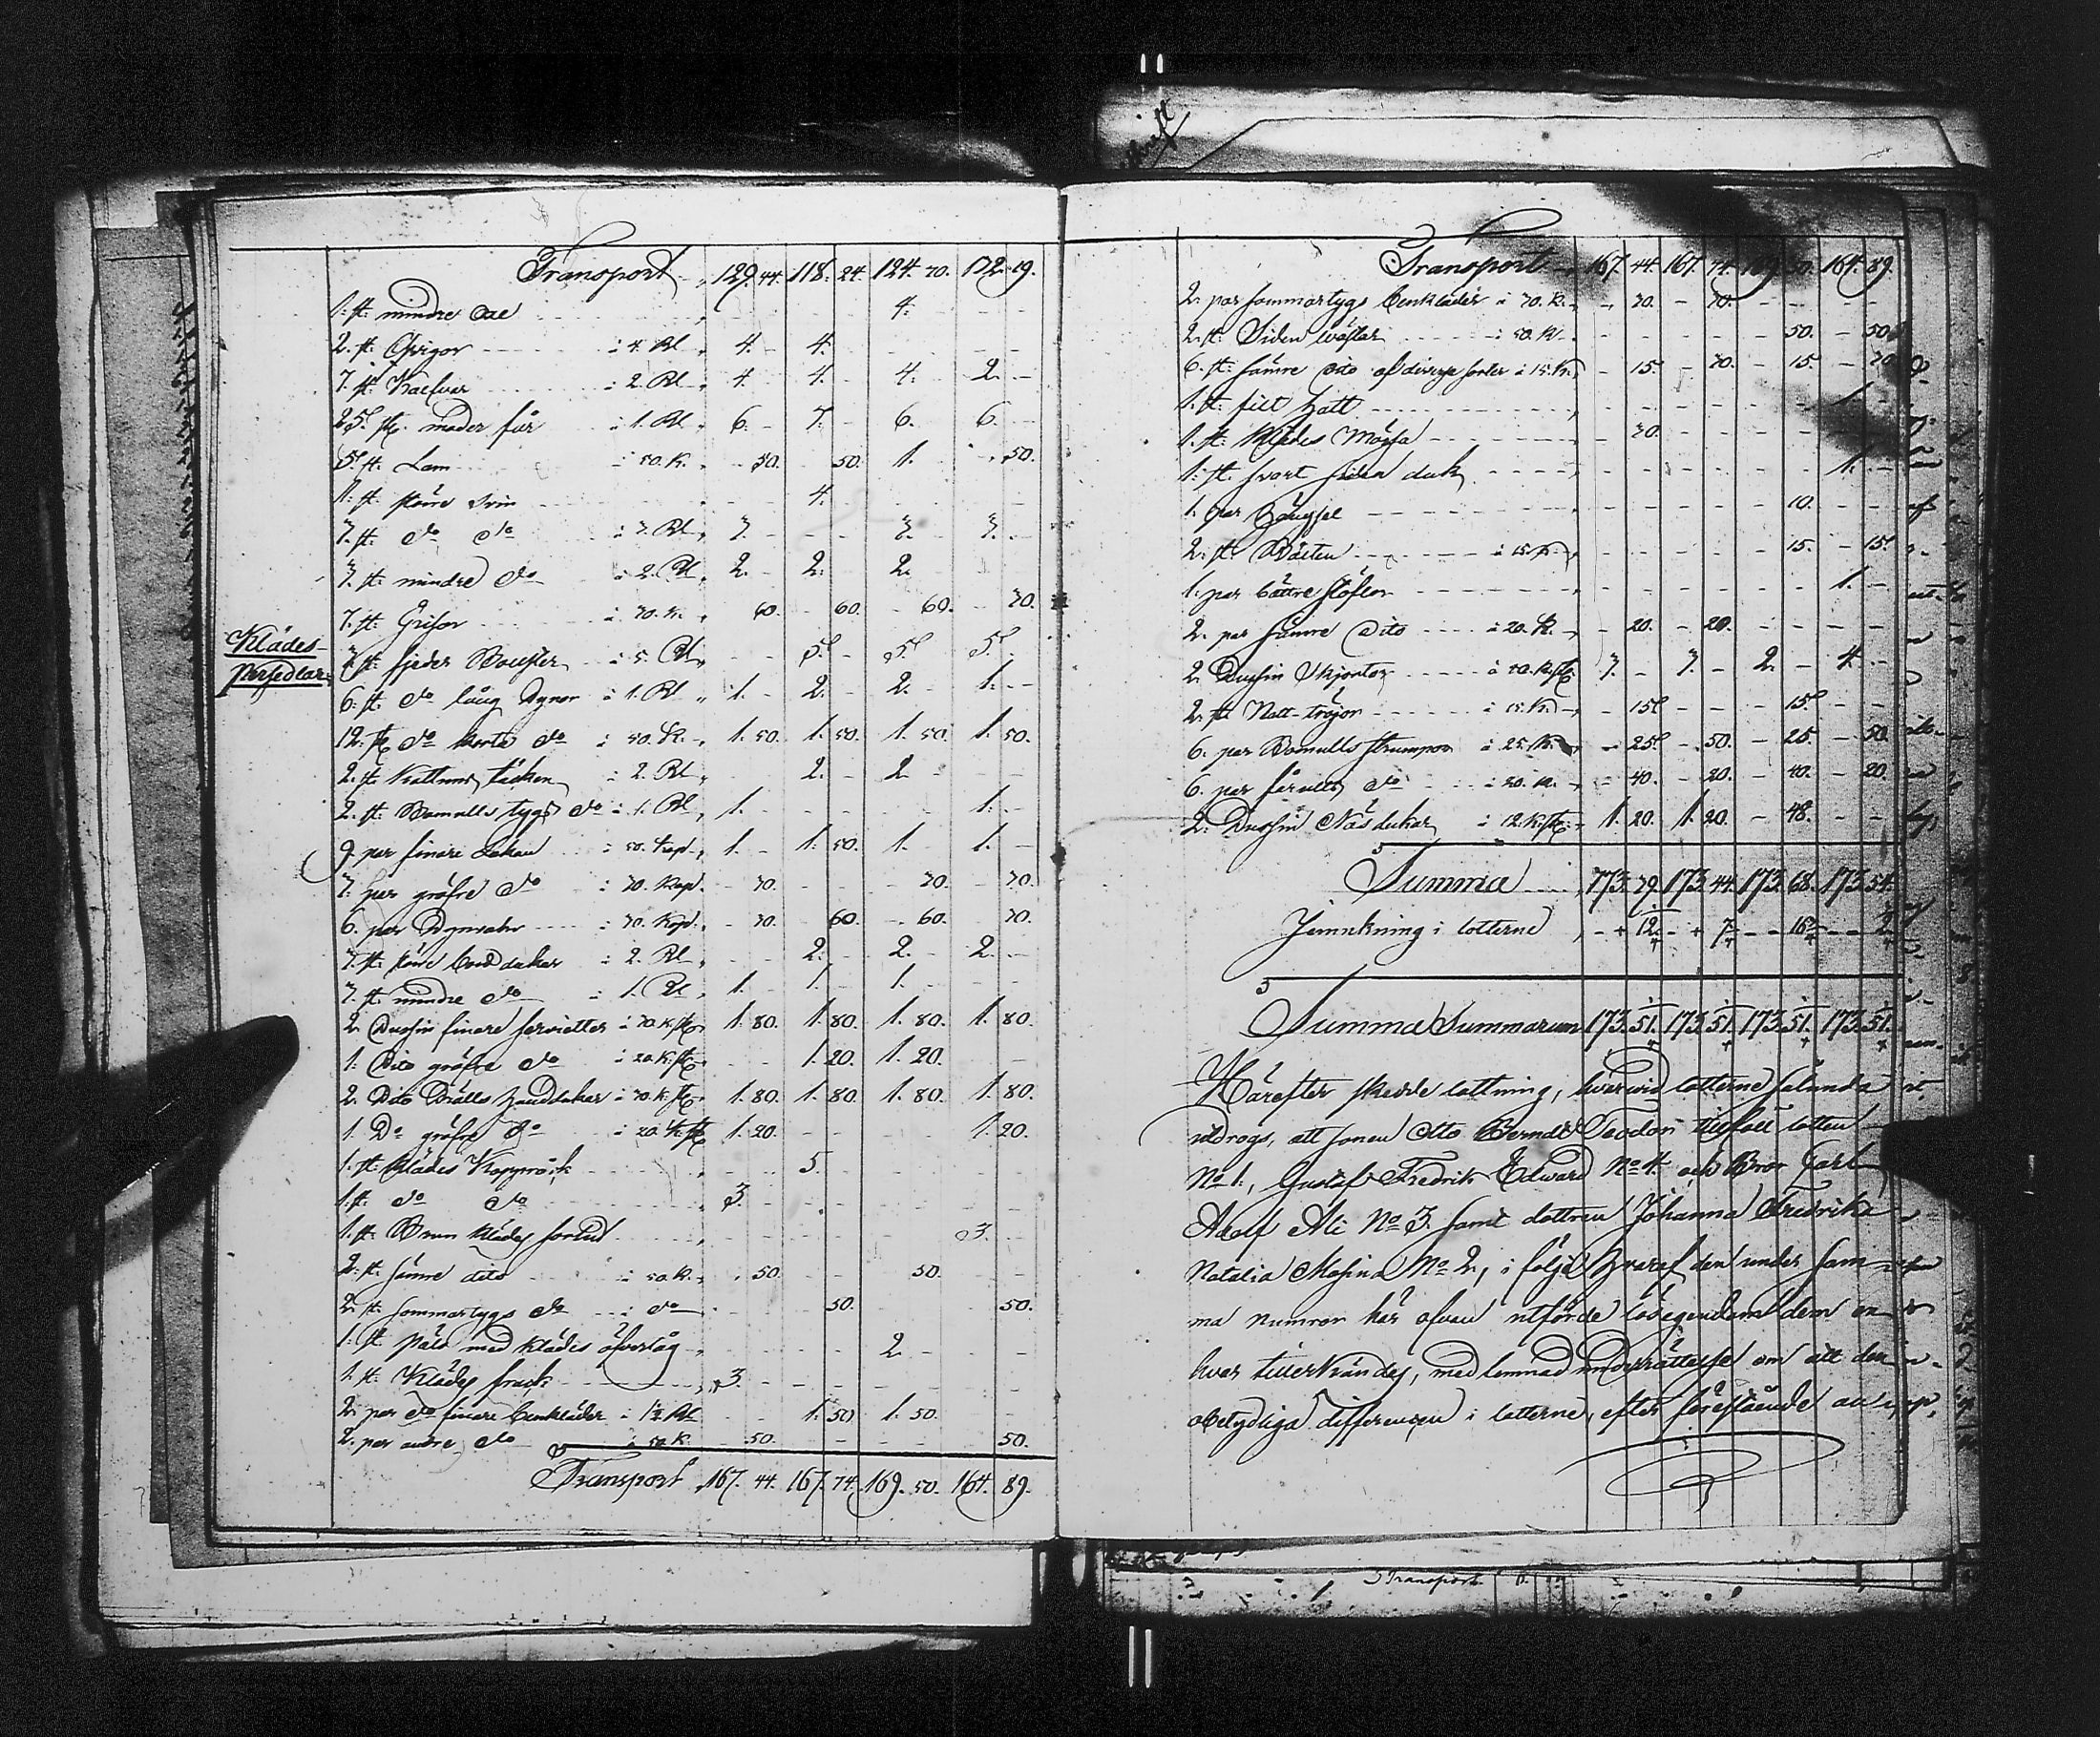 Transport 129. 44. 118. 24. 124. 70. 132. 19.
1. st: mindre 4.
2. st: Qvigor à 4. Rl 4. - 4.
7. st: Kalfvar à 2. Rl 4. 4. 4. 2. -
25. st. moder får à 1. Rl 6. - 7. - 6. 6.
5. st: Lam à 50. K. 50. 50. 1. 50.
1. st. större Svin 4.
3. st: do do à 3. Rl 3. 3. 3.
3. st: mindre do à 2. Rl 2. - 2. 2.
7. st: Grisar à 30. K. 60. 60. 60. 30.
Klädes-
Persedlar
3. st: fjeder Bolster à 5. Rl 5. - 5. 5.
6. st. do lång Dynor à 1. Rl 1. - 2. 2. 1. -
12. st do korta do à 50. K. 1. 50. 1. 50. 1. 50. 1. 50.
2. st: Kattuns täcken à 2. Rl 2. - 2. -
2. st: Bomullstygs do à 1. Rl 1. 1. -
9. par finare Lakan à 50. Kop. 1. - 1. 50. 1. 1. -
3. par gröfre do à 30. Kop. 30. 30. 30.
6. par Dynvahr à 30. Kop. 30. 60. 60. 30.
3. st: större bord dukar à 2. Rl 2. 2. - 2. -
3. st: mindre do à 1. Rl 1. 1. 1.
2. Dussin finare servietter à 30. K. st. 1. 80. 1. 80. 1. 80. 1. 80.
1. Dito gröfre do à 20. K. st. 1. 20. 1. 20.
2. Dito Drälls Handdukar à 30. K. st. 1. 80. 1. 80. 1. 80. 1. 80.
1. Do gröfre do à 20. K. st 1. 20. 1. 20.
1. st: Klädes Kapprock 5.
1. st: do do 3.
1. st: Brun Klädes 3.
2. st: sämre dito à 50. K. 50. 50.
2. st: sommartygs do à do 50. 50.
1. st: päls med klädes öfverlag 2.
1. st: Klädes frack 3.
2. par do finare benkläder à 1½ Rl 1. 50. 1. 50.
2. par andre do à 50. K. 50. 50.
Transport 167. 44. 167. 74. 169. 50. 164. 89.
Transport 167. 44. 167. 74. 169. 50. 164. 89.
2. par sommartygs benkläder à 30. K. 30. - 30.
2. st: Siden västar à 50. K. 50. - 50.
6. st: sämre dito af diverse sorter à 15. K. 15. - 30. - 15. - 30
1. st: filt hatt 1.
1. st: Klädes Mössa 30.
1. st. svart siden duk 1. -
1. par Hängsel 10.
2. st: Bälten à 15. K. 15. - 15.
1. par bättre stöflor 1. -
2. par sämre Dito à 20. K. 20. - 20.
2. Dussin Skjortor à 50. K. st. 3. - 3. - 2. - 4. -
2. st. Natt-tröjor à 15. K. 15. 15.
6. par Bomulls strumpor à 25. K. 25. - 50. - 25. - 50.
6. par fårulls do à 20. K. 40. - 20. - 40. - 20.
2. Dussin Näs dukar à 12. K. st. 1. 20. 1. 20. - 48. - -
Summa 173. 39. 173. 44. 173. 68. 173. 54.
Jemnkning i lotterne + 12. + 7. - 16½ -
Summa Summarum 173. 51. 173. 51. 173. 51. 173. 51.
Härefter skedde lottning, hvarvid lotterne sålunda
utdrogs, att sonen Otto Berndt Teodor tillföll lotten
No 1., Gustaf Fredrik Edward No 4. och Bror Carl
Adolf Ali No 3. samt dottren Johanna Fredrika
Natalia Mosina No 2., i följd hvaraf den under sam-
ma numror här ofvan utförde lösegendom dem en
hvar tillerkändes, med lemnad underrättelse om att den
obetydliga differencen i lotterne, efter föreslående au